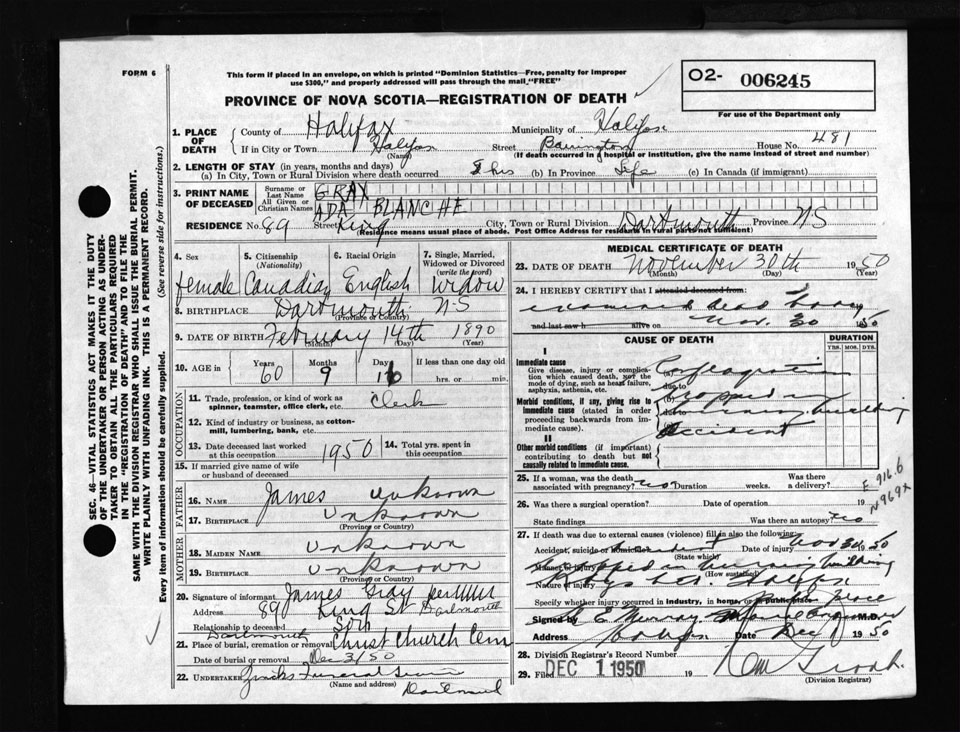 FORM 6
This form if placed in an envelope, on which is printed "Dominion Statistics—Free, penalty for improper
use $300," and properly addressed will pass through the mail, "FREE"
O2- 006245
For use of the Department only
PROVINCE OF NOVA SCOTIA—REGISTRATION OF DEATH
1. PLACE OF DEATH
County of Halifax Municipality of Halifax
If in City or Town Halifax Street Barrington House No. 481
(Name) (If death occurred in hospital or institution, give the name instead of street and number)
2. LENGTH OF STAY (in years, months and days)
(a) In City, Town or Rural Division where death occurred 8 hrs (b) In Province Life (c) In Canada (if immigrant)
3. PRINT NAME OF DECEASED
Surname or Last Name GRAY
All Given or Christian Names ADA BLANCHE
RESIDENCE No. 89 Street King City, Town or Rural Division Dartmouth Province NS
(Residence means usual place of abode. Post Office Address for residents in rural parts not sufficient)
4. Sex female
5. Citizenship (Nationality) Canadian
6. Racial Origin English
7. Single, Married, Widowed or Divorced (write the word) Widow
8. BIRTHPLACE Dartmouth N.S
(Province or Country)
9. DATE OF BIRTH February 14th 1890
(Month) (Day) (Year)
10. AGE in Years 60 Months 9 Days 16 If less than one day old
hrs. or min.
OCCUPATION
11. Trade, profession, or kind of work as spinner, teamster, office clerk, etc. Clerk
12. Kind of industry or business, as cotton-mill, lumbering, bank, etc.
13. Date deceased last worked at this occupation 1950
14. Total yrs. spent in this occupation
15. If married give name of wife or husband of deceased
FATHER
16. NAME James unknown
17. BIRTHPLACE Unknown
(Province or Country)
MOTHER
18. MAIDEN NAME Unknown
19. BIRTHPLACE Unknown
(Province or Country)
20. Signature of informant James Gray
Address 89 King St Dartmouth
Relationship to deceased Son
21. Place of burial, cremation or removal Dartmouth Christ Church Cem
Date of burial or removal Dec 3/50
22. UNDERTAKER Zinks Funeral
(Name and address)
MEDICAL CERTIFICATE OF DEATH
23. DATE OF DEATH November 30th 1950
(Month) (Day) (Year)
24. I HEREBY CERTIFY that I attended deceased from:
examined dead body
and last saw h alive on Nov. 30 1950
CAUSE OF DEATH
DURATION
YRS. MOS. DYS.
I
Immediate cause
Give disease, injury or complication which caused death, not the mode of dying, such as heart failure, asphyxia, asthenia, etc.
(a) Conflagration
due to
Morbid conditions, if any, giving rise to immediate cause (stated in order proceeding backwards from immediate cause).
(b) trapped in
due to burning building
(c) Accident
II
Other morbid conditions (if important) contributing to death but not causally related to immediate cause.
25. If a woman, was the death associated with pregnancy? no Duration weeks. Was there a delivery?
E 916.6
N969X
26. Was there a surgical operation? Date of operation 19
State findings Was there an autopsy? no
27. If death was due to external causes (violence) fill in also the following:
Accident, suicide or homicide Accident Date of injury Nov 30 1950
(State which)
Manner of injury Trapped in burning building
(How sustained)
Nature of injury
Specify whether injury occurred in industry, in home, or public place
Signed by Murray M.D.
Address Halifax Date Dec 1 1950
28. Division Registrar's Record Number
29. Filed DEC 1 1950 19
(Division Registrar)
SEC. 46—VITAL STATISTICS ACT MAKES IT THE DUTY
OF THE UNDERTAKER OR PERSON ACTING AS UNDER-
TAKER TO OBTAIN ALL THE PARTICULARS REQUIRED
IN THE "REGISTRATION OF DEATH" AND TO FILE THE
SAME WITH THE DIVISION REGISTRAR WHO SHALL ISSUE THE BURIAL PERMIT.
WRITE PLAINLY WITH UNFADING INK. THIS IS A PERMANENT RECORD.
Every item of information should be carefully supplied. (See reverse side for instructions.)